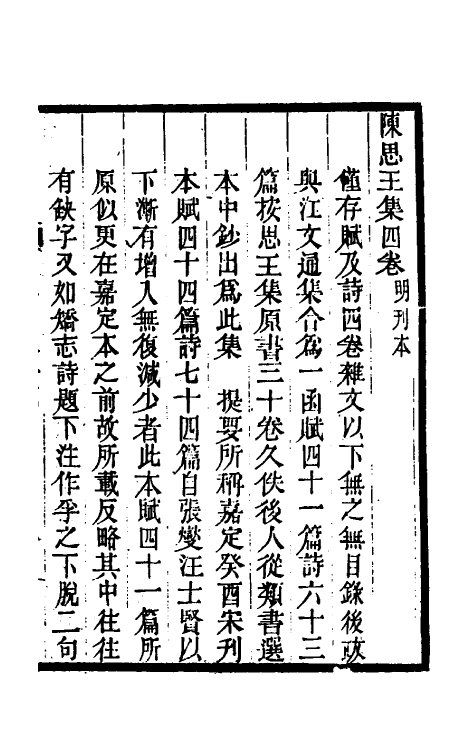 陳思王集四卷 明刊本
僅存賦及詩四卷雜文以下無之無目錄後跋
與江文通集合為一函賦四十一篇詩六十三
篇按思王集原書三十卷久佚後人從類書選
本中鈔出為此集　提要所稱嘉定癸酉宋刊
本賦四十四篇詩七十四篇自張燮汪士賢以
下漸有增入無復減少者此本賦四十一篇所
原似更在嘉定本之前故所載反略其中往往
有缺字又如矯志詩題下注作孚之下脫二句